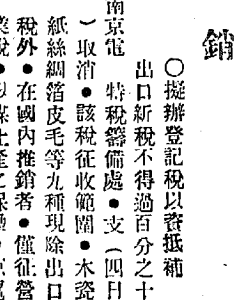 銷
〇擬辦登記稅以資抵補
出口新稅不得過百分之十
南京電 特稅籌備處●支（四日
）取消●該稅征收範圍●木瓷
紙絲綢箔皮毛等九種現除出口
稅外●在國內推銷者●僅征營